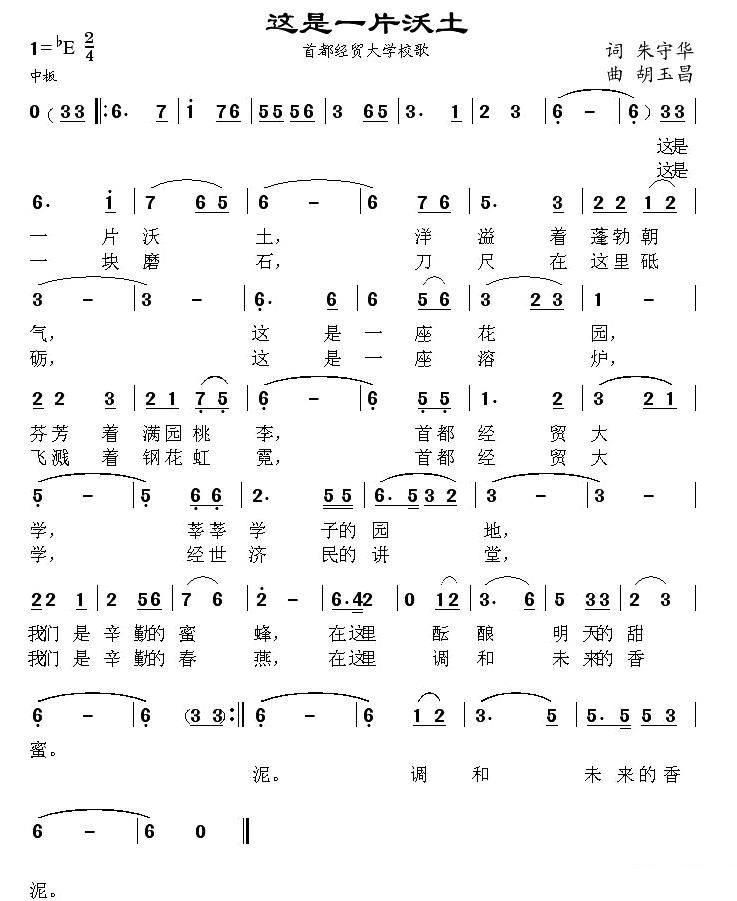 这是一片沃土
1=♭E 2/4 首都经贸大学校歌 词 朱守华
中板 曲 胡玉昌
0 (33 |: 6. 7 | i 76 | 5556 | 3 65 | 3. 1 | 2 3 | 6 - | 6) 33 |
这是
这是
6. i | 7 65 | 6 - | 6 76 | 5. 3 | 22 12 |
一 片 沃 土, 洋 溢 着 蓬勃 朝
一 块 磨 石, 刀 尺 在 这里 砥
3 - | 3 - | 6. 6 | 6 56 | 3 23 | 1 - |
气, 这 是 一 座 花 园,
砺, 这 是 一 座 溶 炉,
2 2 3 | 21 75 | 6 - | 6 55 | 1. 2 | 3 21 |
芬芳 着 满园 桃 李, 首都 经 贸 大
飞溅 着 钢花 虹 霓, 首都 经 贸 大
5 - | 5 66 | 2. 55 | 6.532 | 3 - | 3 - |
学, 莘莘 学 子的 园 地,
学, 经世 济 民的 讲 堂,
22 1 | 2 56 | 7 6 | 2 - | 6.42 | 0 12 | 3. 6 | 5 33 | 2 3 |
我们 是 辛 勤的 蜜 蜂, 在这里 酝 酿 明 天的 甜
我们 是 辛 勤的 春 燕, 在这里 调 和 未 来的 香
6 - | 6 (33) :| 6 - | 6 12 | 3. 5 | 5. 553 |
蜜。
泥。 调 和 未 来的香
6 - | 6 0 ‖
泥。